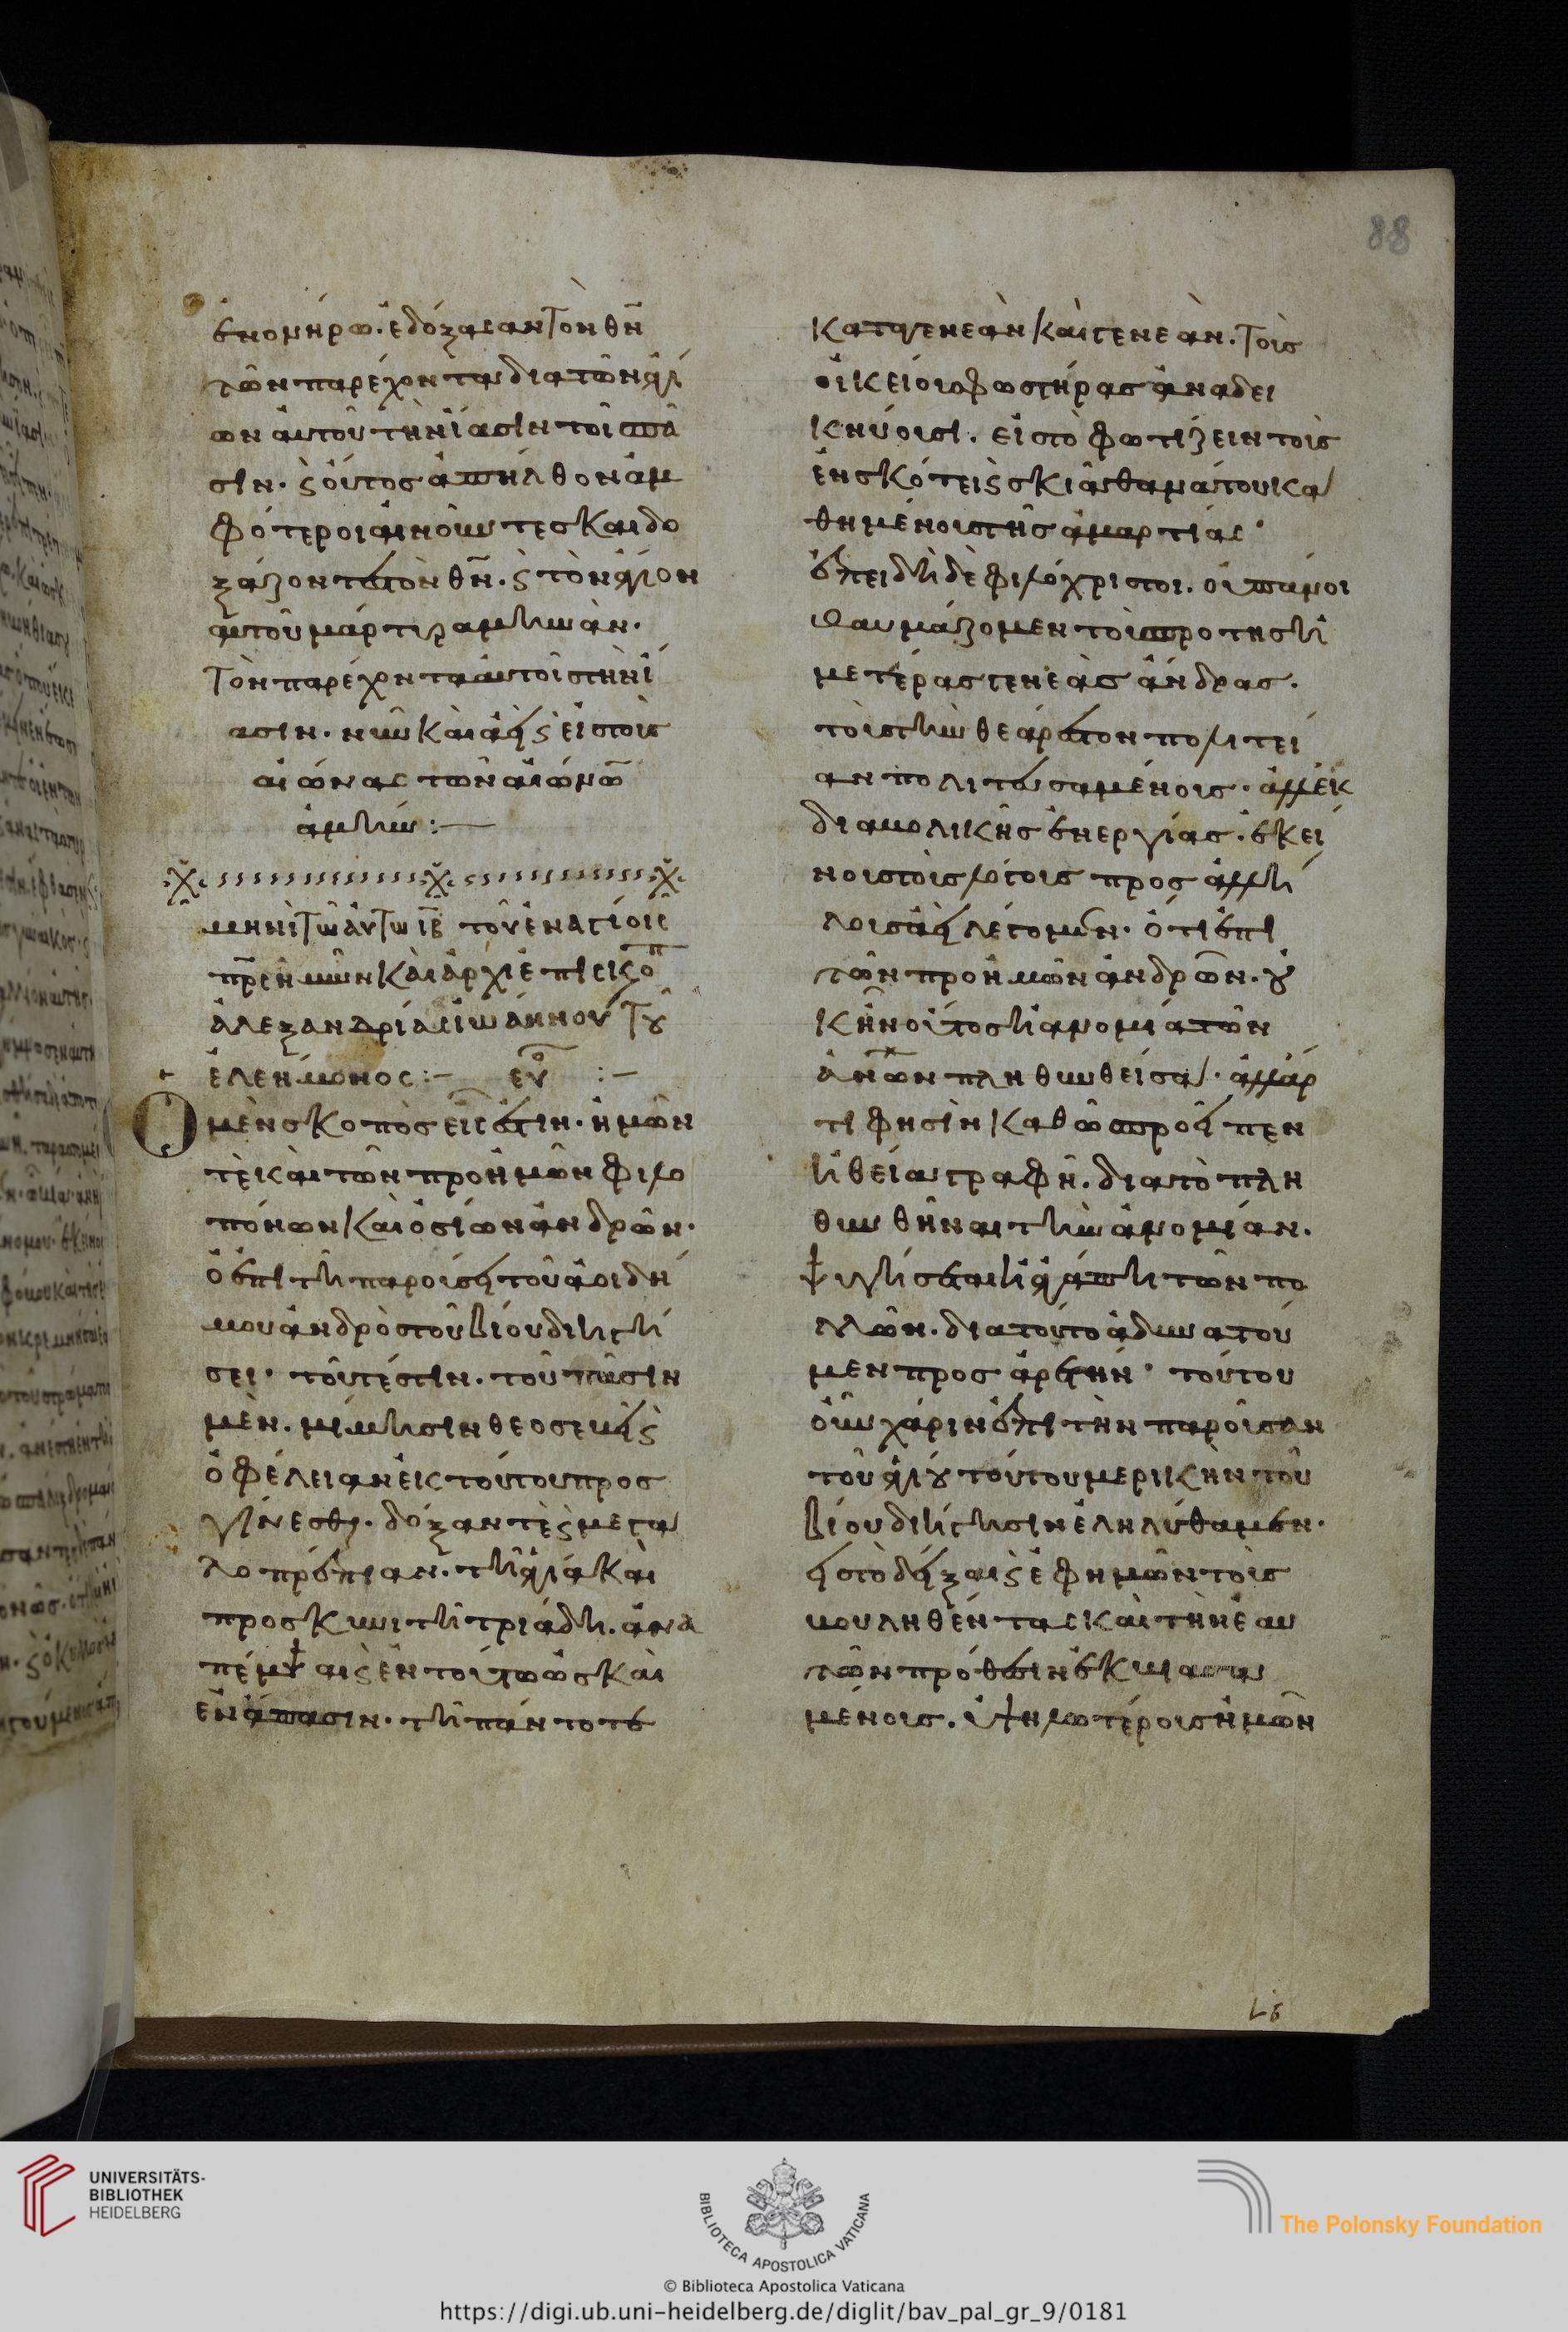 88
ἐνομήρω. ἐδόξασαν τὸν θν̄
τῶν παρέχοντα διὰ τῶν ἁγί
ων αὐτοῦ τὴν ἴασιν τοῖς πᾶ
σιν. ϛ οὕτος ἀπῆλθον ἀμ
φότεροι αἰνοῦντες καὶ δο
ξάζοντες τὸν θν̄. ϛ τὸν ἅγιον
αὐτοῦ μάρτυρα μηνᾶν.
τὸν παρέχοντα αὐτοῖς τὴν ἴ
ασιν. νῦν καὶ ἀεὶ ϛ εἰς τοὺς
αἰῶνας τῶν αἰώνω̄
ἀμήν :—
μηνὶ τῶ αὐτῶ ιβ̄ τοῦ ἐν ἁγίοις
πρ̄ς ἡμῶν καὶ ἀρχιεπισκόπ
ἀλεξανδρίας ἰωάννου τȣ
ἐλεήμονος :— εὐ :—
Ὁ μὲν σκοπὸς εἷς ἐστιν. ἡμῶν
τὲ καὶ τῶν προ ἡμῶν φιλο
πόνων καὶ ὁσίων ἀνδρῶν.
ὁ ἐπι τῆ παρούση τοῦ ἀοιδή
μου ἀνδρὸς τοῦ βίου διηγή
σει. τοῦτέστιν. τοῦ πᾶσιν
μὲν. μίμησιν θεοσεβῆ ϛ
ὀφέλειαν εἰς τούτου προσ
γίνεσθαι. δόξαν τὲ ϛ μεγα
λοπρέπιαν. τῆ ἁγία καὶ
προσκυνιτῆ τριάδη. ἀνα
πέμψαι ϛ ἐν τούτω ὡς καὶ
ἐν ἅπασιν. τῆ πάντοτε
κατὰ γενεὰν καὶ γενεὰν. τοὺς
οἰκείους φωστήρας ἀναδει
κνύουσι. εἰς τὸ φωτίζειν τοὺς
ἐν σκότει ϛ σκιᾶ θανάτου κα
θημένους τῆς ἁμαρτίας.
ἐπειδὴ δὲ φιλόχριστοι. οὐ πάνοι
θαυμάζομεν τοὺς προ τῆς ἡ
μετέρας γενεὰς ἄνδρας.
τοὺς τὴν θεάρεστον πολιτεί
αν πολιτευσαμένοις. ἀλλ' ἐκ
διαβολικῆς ἐνεργίας. ἐκεί
νους τοὺς λόγους προς ἀλλή
λους ἀεὶ λέγομεν. ὅτι ἐπι
τῶν προ ἡμῶν ἀνδρῶν. ȣ
κ ἦν οὕτος ἡ ἀνομία τῶν
ἀν̄ων πληθυνθείσα. ἀλλ' ἄρ
τι φησὶν καθὼς προεῖπεν
ἡ θεία γραφή. διὰ τὸ πλη
θυνθῆναι τὴν ἀνομίαν.
ψυγήσεται ἡ ἀγάπη τῶν πο
λλῶν. διὰ τοῦτο ἀδυνατοῦ
μεν προς ἀρετήν. τούτου
οὖν χάριν ἐπι τὴν παροῦσαν
τοῦ ἁγίȣ τούτου μερικὴν τοῦ
βίου διήγησιν ἐληλύθαμεν.
εἰς τὸ δεῖξαι ϛ ἐφ ἡμῶν τοὺς
βουληθέντας καὶ τὴν ἑαυ
τῶν πρόθεσιν ἐκβιασα
μένους. ὑψηλωτέρους ἡμῶν
UNIVERSITÄTS-
BIBLIOTHEK
HEIDELBERG
BIBLIOTECA APOSTOLICA VATICANA
© Biblioteca Apostolica Vaticana
The Polonsky Foundation
https://digi.ub.uni-heidelberg.de/diglit/bav_pal_gr_9/0181